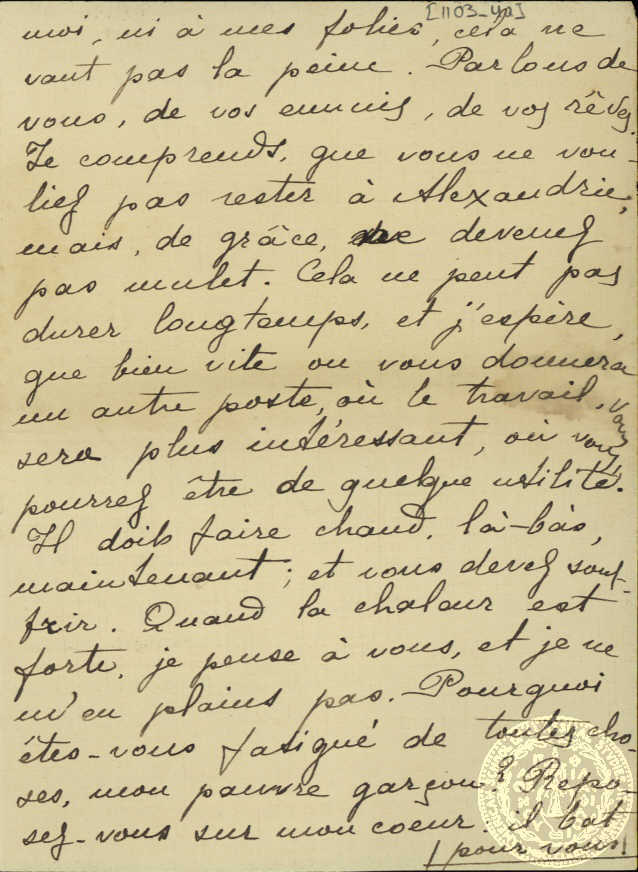 [1103-4a]
moi, ni à mes folies, cela ne
vaut pas la peine. Parlons de
vous, de vos ennuis, de vos rêves.
Je comprends, que vous ne vou-
liez pas rester à Alexandrie,
mais, de grâce, ne devenez
pas mulet. Cela ne peut pas
durer longtemps, et j'espère,
que bien vite on vous donnera
un autre poste, où le travail, vous
sera plus intéressant, où vous
pourrez être de quelque utilité.
Il doit faire chaud, là-bàs,
maintenant; et vous devez souf-
frir. Quand la chaleur est
forte, je pense à vous, et je ne
m'en plains pas. Pourquoi
êtes-vous fatigué de toutes cho-
ses, mon pauvre garçon? Repo-
sez-vous sur mon coeur, il bat
pour vous!